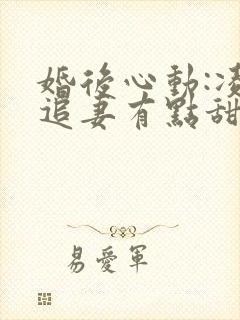 婚後心動:凌
追妻有點甜
易愛軍